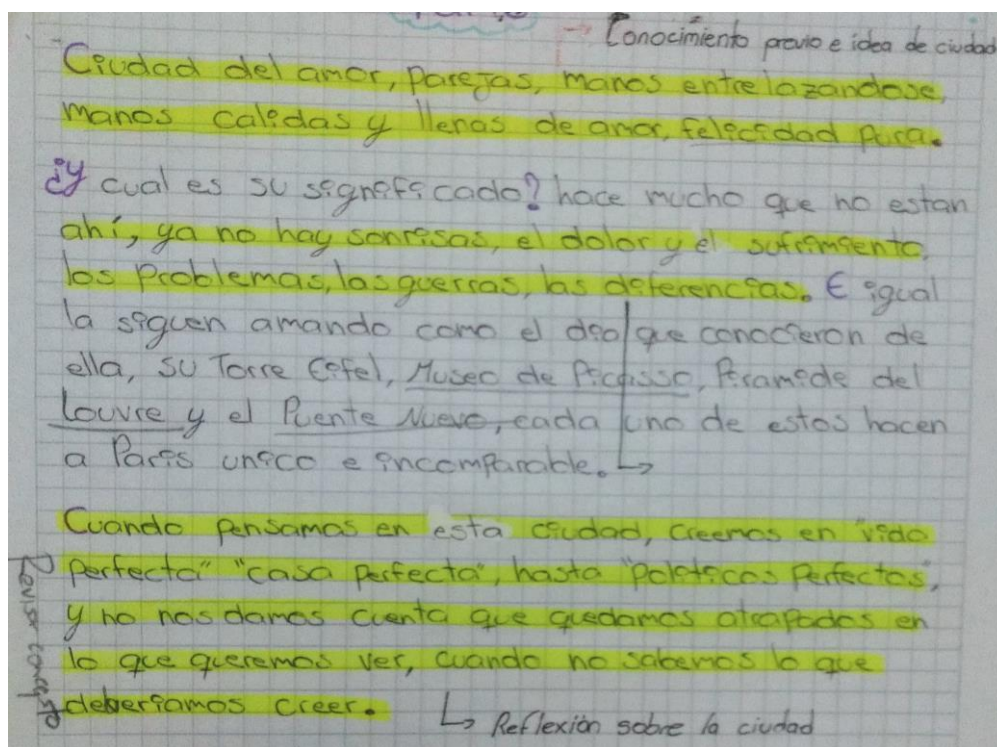 Conocimiento previo e idea de ciudad
Ciudad del amor, parejas, manos entrelazandose,
manos calidas y llenas de amor, felicidad pura.
¿Y cual es su significado? hace mucho que no estan
ahí, ya no hay sonrisas, el dolor y el sufrimiento,
los problemas, las guerras, las diferencias. E igual
la siguen amando como el dia que conocieron de
ella, su Torre Eifel, Museo de Picasso, Piramide del
Louvre y el Puente Nuevo, cada uno de estos hacen
a Paris unico e incomparable.
Cuando pensamos en esta ciudad, creemos en "vida
perfecta" "casa perfecta", hasta "politicos perfectos",
y no nos damos cuenta que quedamos atrapados en
lo que queremos ver, cuando no sabemos lo que
deberiamos creer.
Reflexión sobre la ciudad
Revisar